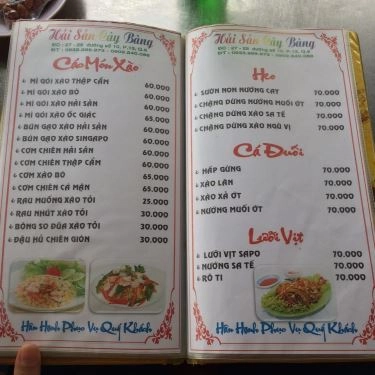 Hải Sản Cây Bàng
Các Món Xào
MÌ GÓI XÀO THẬP CẨM 60.000
MÌ GÓI XÀO BÒ 60.000
MÌ GÓI XÀO HẢI SẢN 60.000
MÌ GÓI XÀO ỐC GIÁC 65.000
BÚN GẠO XÀO HẢI SẢN 60.000
BÚN GẠO XÀO SINGAPO 60.000
CƠM CHIÊN HẢI SẢN 60.000
CƠM CHIÊN THẬP CẨM 60.000
CƠM XÀO BÒ 65.000
CƠM CHIÊN CÁ MẶN 65.000
RAU MUỐNG XÀO TỎI 30.000
RAU NHÚT XÀO TỎI 30.000
BÔNG SO ĐŨA XÀO TỎI 30.000
ĐẬU HỦ CHIÊN GIÒN 30.000
Hân Hạnh Phục Vụ Quý Khách
Hải Sản Cây Bàng
Heo
SƯỜN NON NƯỚNG CAY 70.000
CHẶNG DỪNG NƯỚNG MUỐI ỚT 70.000
CHẶNG DỪNG XÀO SA TẾ 70.000
CHẶNG DỪNG XÀO NGŨ VỊ 70.000
Cá Đuối
HẤP GỪNG 70.000
XÀO LĂN 70.000
XÀO XẢ ỚT 70.000
NƯỚNG MUỐI ỚT 70.000
Lưỡi Vịt
LƯỠI VỊT SAPO 70.000
NƯỚNG SA TẾ 70.000
RÔ TI 70.000
Hân Hạnh Phục Vụ Quý Khách